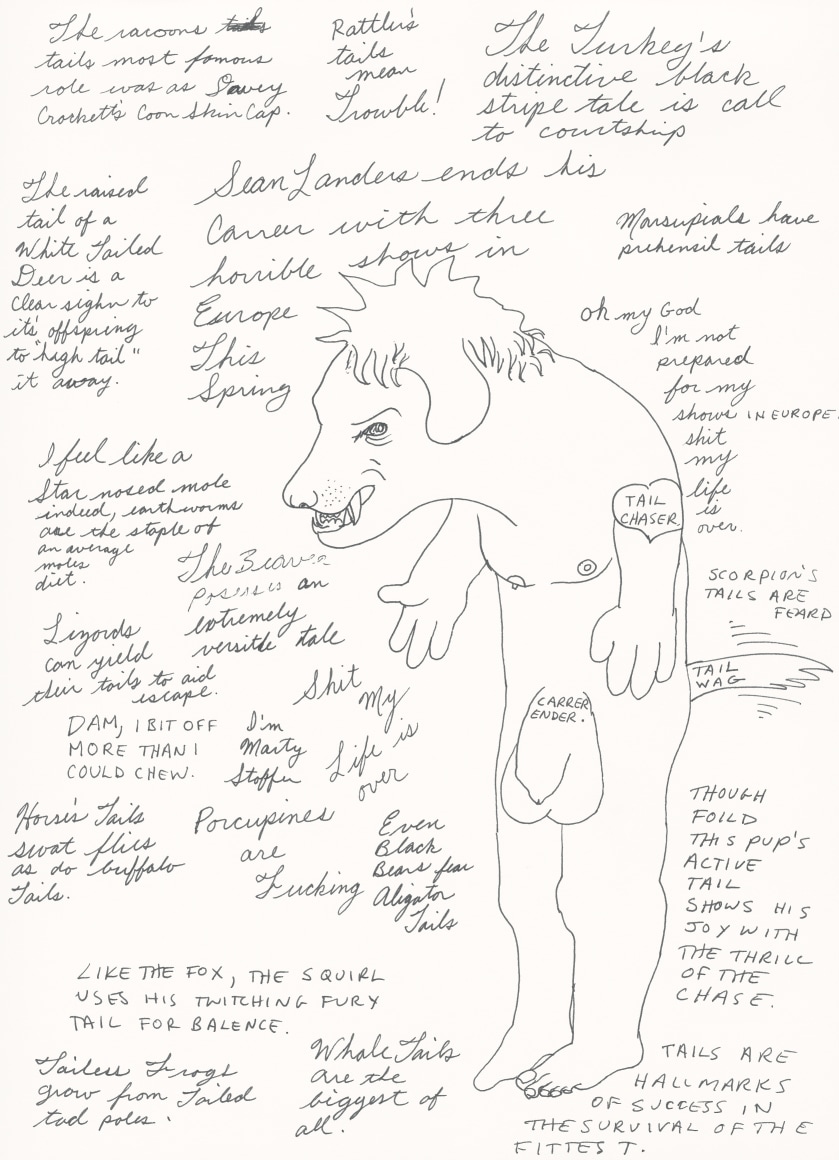 The racoons tails
tails most famous
role was as Davey
Crockett's Coon Skin Cap.
Rattler's
tails
mean
Trowble!
The Turkey's
distinctive black
stripe tale is call
to courtship
Sean Landers ends his
Carreer with three
horrible shows in
Europe
This
Spring
The raised
tail of a
White Tailed
Deer is a
clear sighn to
its' offspring
to "high tail"
it away.
Marsupials have
prehensil tails
oh my God
I'm not
prepared
for my
shows IN EUROPE.
shit
my
life
is
over.
I feel like a
Star nosed mole
indeed, earthworms
are the staple of
an average
moles
diet.
TAIL
CHASER.
The Beaver
posesses an
extremely
versitle tale
SCORPION'S
TAILS ARE
FEARD
Lizards
can yield
their tails to aid
escape.
TAIL
WAG
Shit
My
Life is
over
CARRER
ENDER.
DAM, I BIT OFF
MORE THAN I
COULD CHEW.
I'm
Marty
Stoffer
Horse's Tails
swat flies
as do buffalo
Tails.
Porcupines
are
Fucking
Even
Black
Bears fear
Aligator
Tails
THOUGH
FOILD
THIS PUP'S
ACTIVE
TAIL
SHOWS HIS
JOY WITH
THE THRILL
OF THE
CHASE.
LIKE THE FOX, THE SQUIRL
USES HIS TWITCHING FURY
TAIL FOR BALENCE.
Tailess Frogs
grow from Tailed
tad poles.
Whale Tails
are the
biggest of
all.
TAILS ARE
HALLMARKS
OF SUCCESS IN
THE SURVIVAL OF THE
FITTEST.